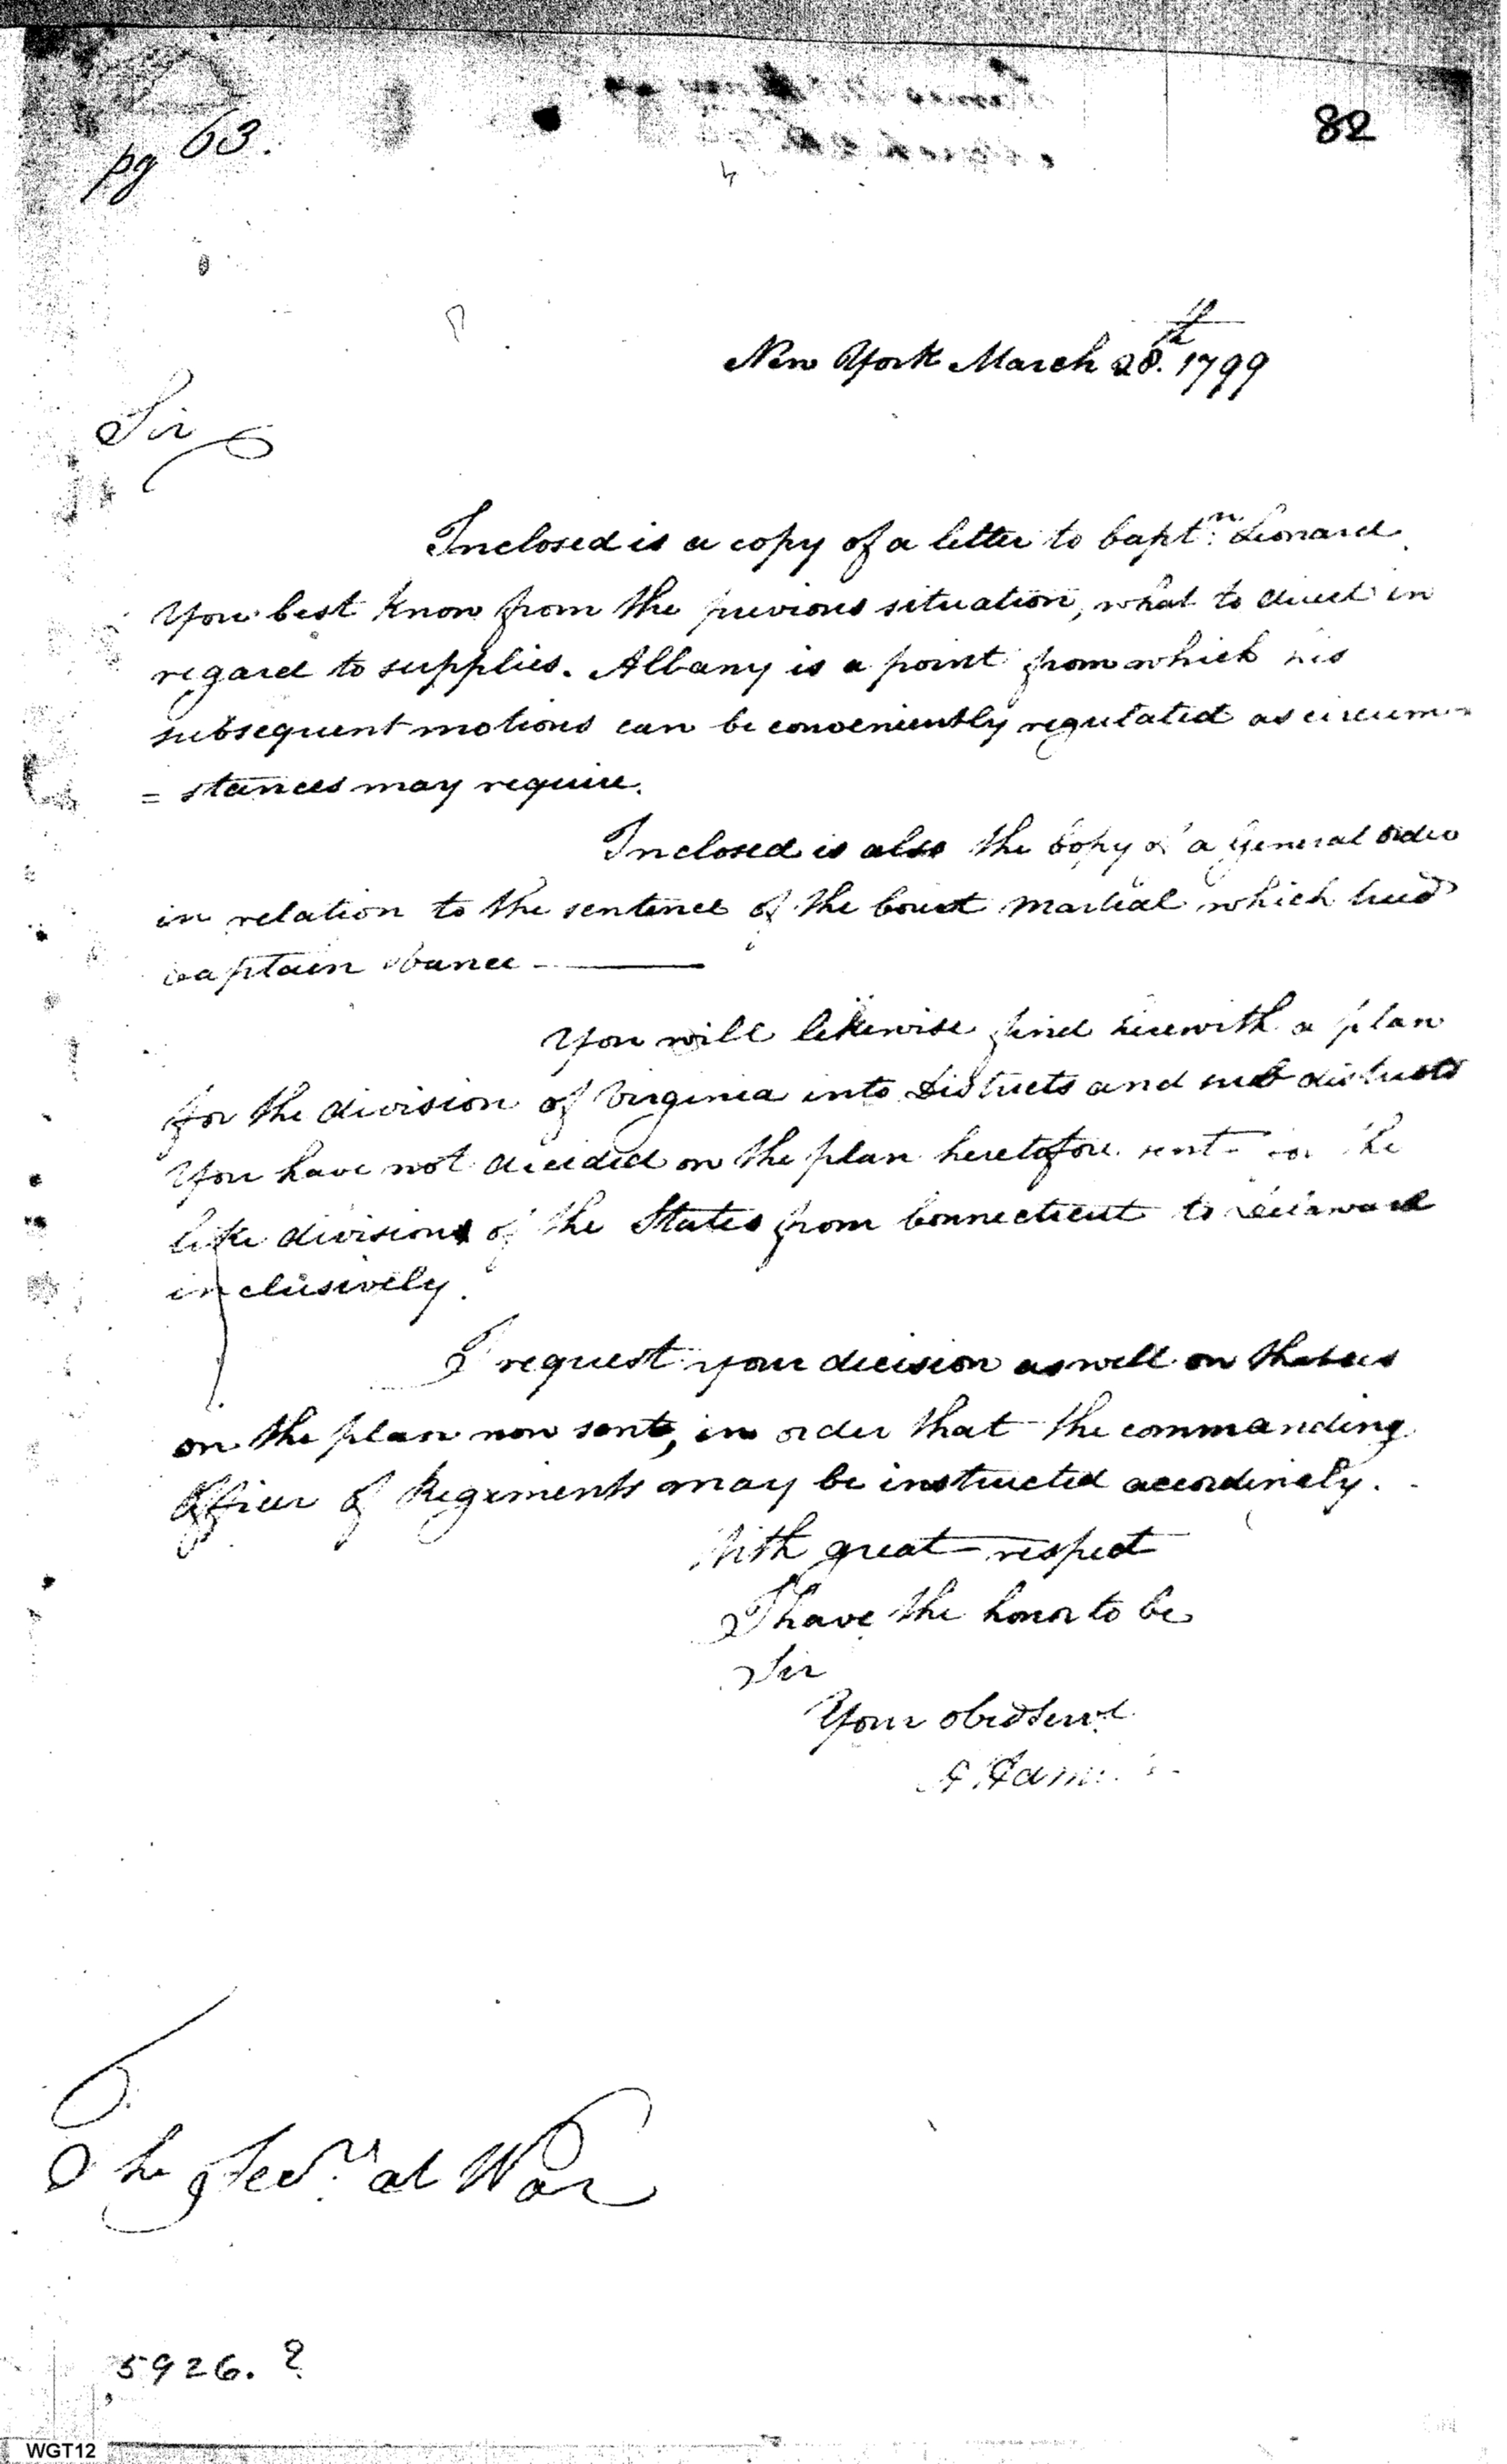 pg 63.
82
New York March 28.th 1799
Sir
Inclosed is a copy of a letter to Captn. Leonard.
You best know from the previous situation, what to direct in
regard to supplies. Albany is a point from which his
subsequent motions can be conveniently regulated as circum-
= stances may require.
Inclosed is also the Copy of a General Order
in relation to the sentence of the Court Martial which tried
Captain Vance
You will likewise find herewith a plan
for the division of Virginia into Districts and sub districts
You have not decided on the plan heretofore sent for the
like division of the States from Connecticut to Delaware
inclusively.
I request your decision as well on that as
on the plan now sent, in order that the commanding
Officer of Regiments may be instructed accordingly.
With great respect
I have the honor to be
Sir
Your obed servt
A Ham
The Secry. at War
5926. ?
WGT12